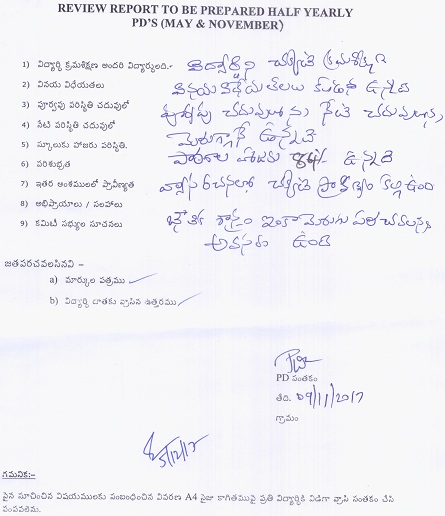 REVIEW REPORT TO BE PREPARED HALF YEARLY
PD'S (MAY & NOVEMBER)
1) విద్యార్థి క్రమశిక్షణ అందరి విద్యార్థులది.- విద్యార్థిని చక్కటి క్రమశిక్షణ
2) వినయ విధేయతలు వినయ విధేయతలు కలిగి ఉన్నది
3) పూర్వపు పరిస్థితి చదువులో పూర్వపు చదువులోను నేటి చదువులోను
4) నేటి పరిస్థితి చదువులో మెరుగ్గానే ఉన్నది
5) స్కూలుకు హాజరు పరిస్థితి. హాజరు 84% ఉన్నది
6) పరిశుభ్రత
7) ఇతర అంశములలో ప్రావీణ్యత వ్యాసరచనలో చక్కటి ప్రావీణ్యం కల్గి ఉంది
8) అభిప్రాయాలు / సలహాలు
9) కమిటీ సభ్యుల సూచనలు భౌతిక శాస్త్రం ఇంకా మెరుగు పరచవలసిన
అవసరం ఉంది
జతపరచవలసినవి –
a) మార్కుల పత్రము
b) విద్యార్థి దాతకు వ్రాసిన ఉత్తరము
PD సంతకం
తేది. 09/11/2017
గ్రామం
గమనిక:-
పైన సూచించిన విషయములకు సంబంధించిన వివరణ A4 సైజు కాగితముపై ప్రతి విద్యార్థికి విడిగా వ్రాసి సంతకం చేసి
పంపవలెను.